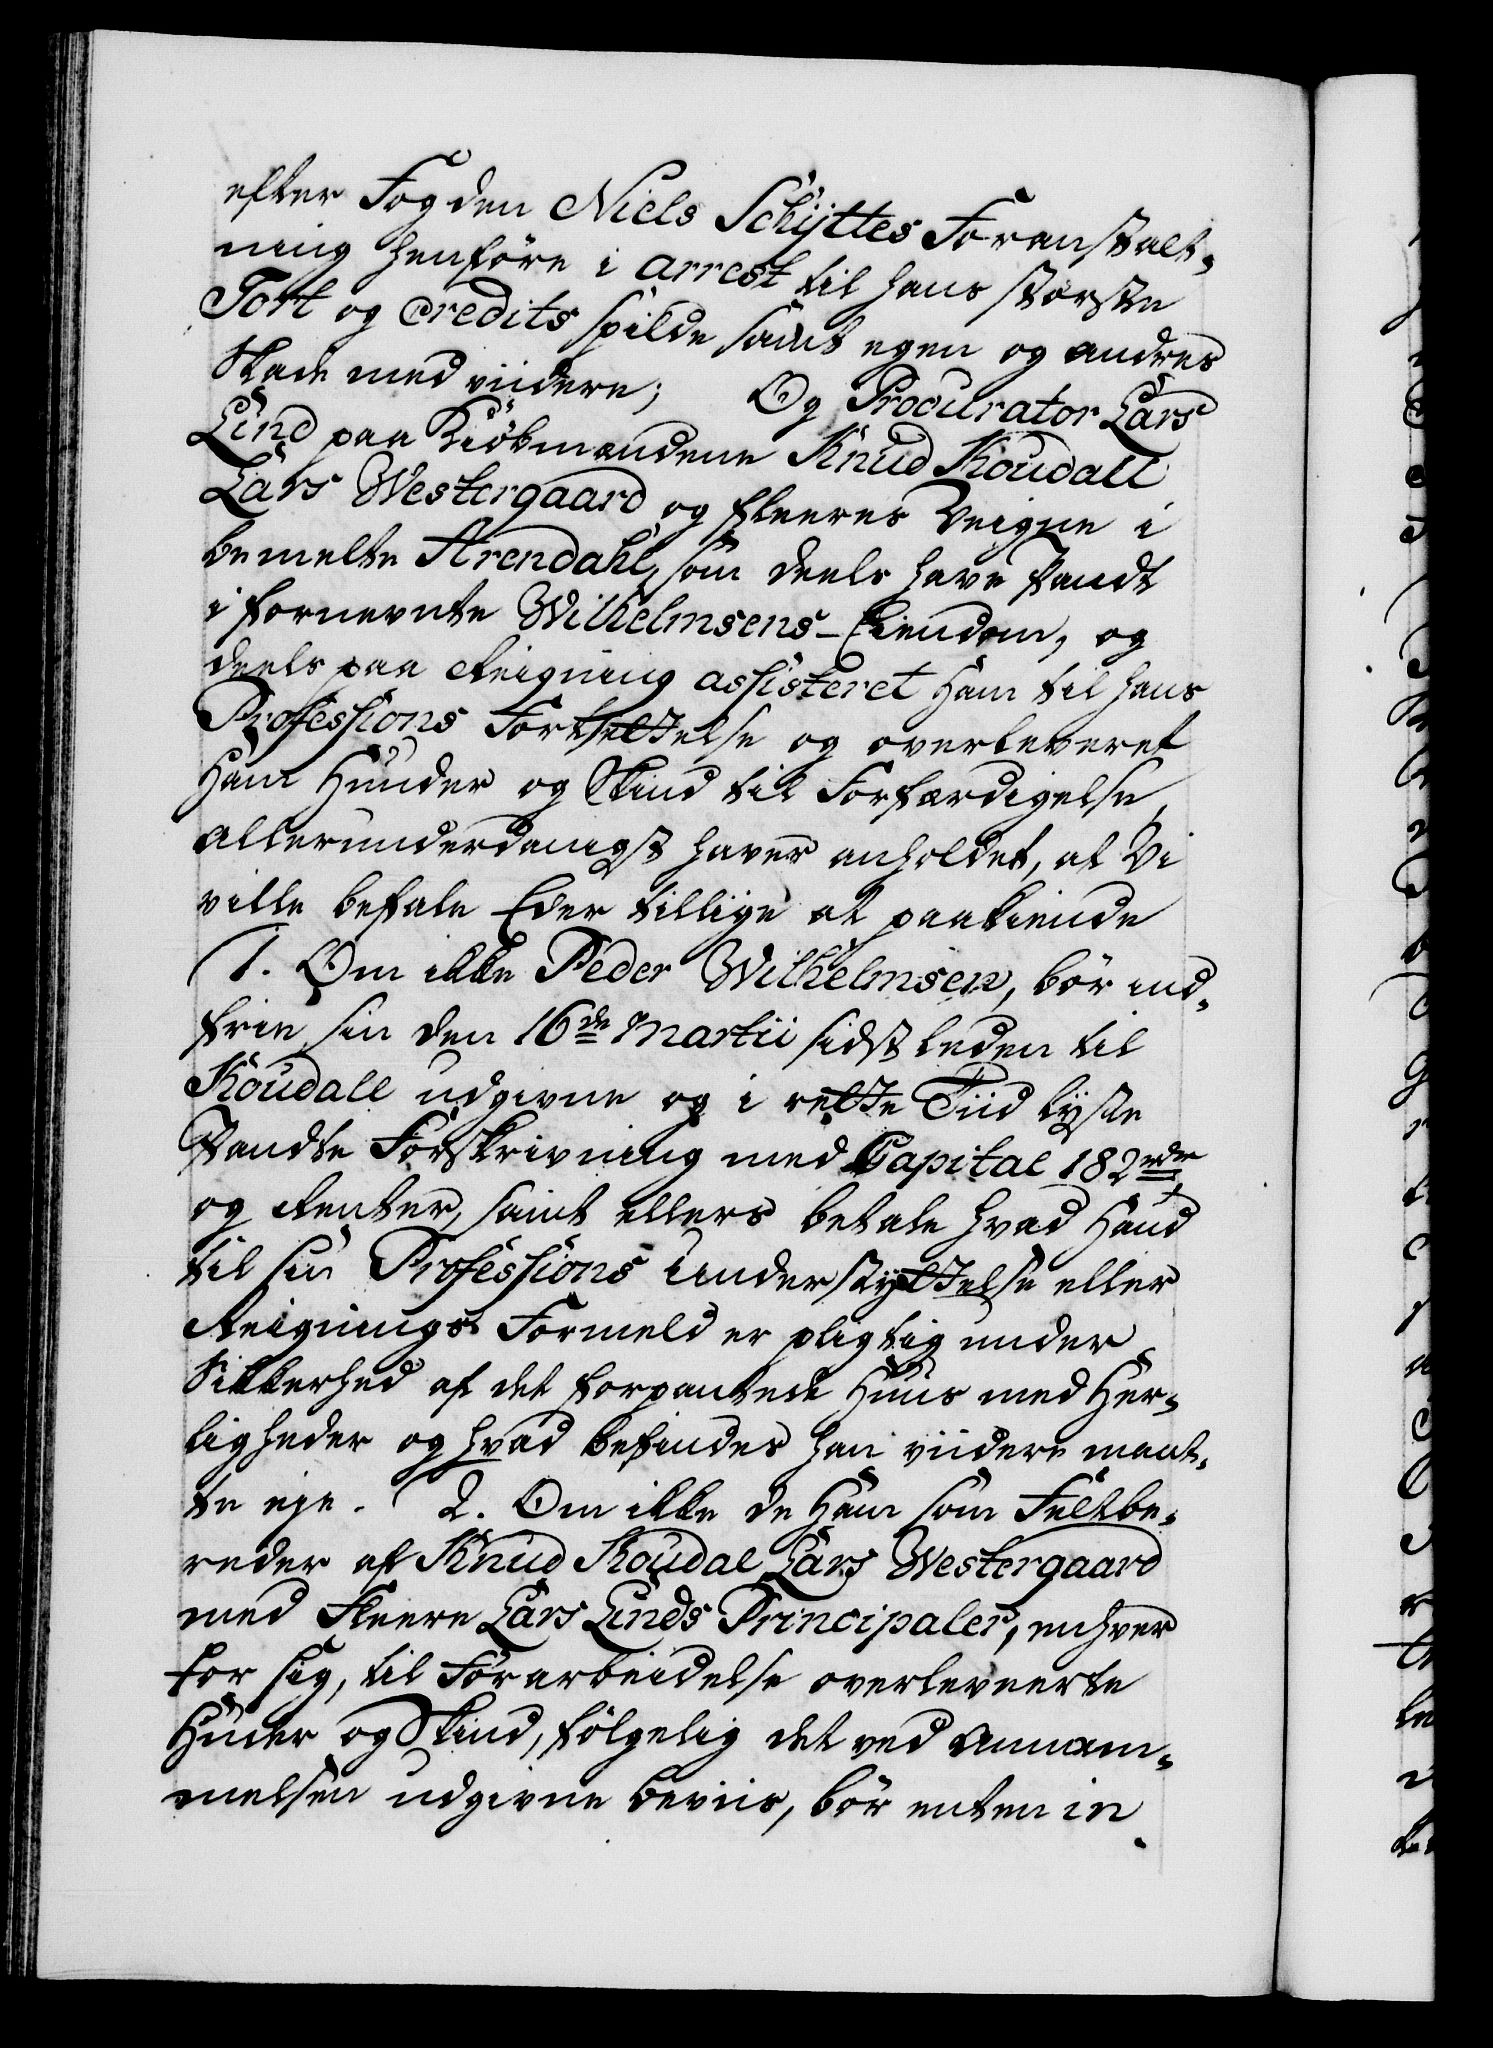 efter Fogden Niels Schÿttes Foranstalt-
ning henføre i arrest til hans største
Tort og Credits spilde samt egen og andres
Skade med viidere; Og Procurator Lars
Lind paa Kiöbmændene Knud Koudall
Lars Westergaard og fleeres Veigne i
bemelte Arendahl, som deels have Pandt
i fornevnte Wilhelmsens Eiendom, og
deels paa Reigning assisteret Ham til hans
Professions Fortsettelse og overleveret
Ham Huuder og Skind til Forfærdigelse
allerunderdanigst haver anholdet, at Vi
ville befale Eder tillige at paakiende
1. Om ikke Peder Wilhelmsen, bör ind-
frie sin den 16de Martii sidstleden til
Koudall udgivne og i rette Tiid lyste
Pandte Forskrivning med Capital 182 rdr
og Renter, samt ellers betale hvad Hand
til sin Professions Understyttelse eller
Reignings Formeld er pligtig under
Sikkerhed af det forpantede Huus med Her-
ligheder og hvad befindes han viidere maat-
te eje. 2. Om ikke de Ham som Feltbe-
reder af Knud Koudal Lars Westergaard
med Fleere Lars Linds Principaler, enhver
for sig, til Forarbeidelse overleverte
Huder og Skind, følgelig det ved Annam-
melsen udgivne beviis, bör enten in